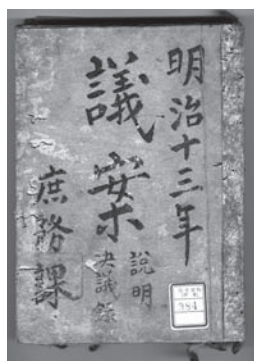 明治十三年
議案
説明
決議録
庶務課
984